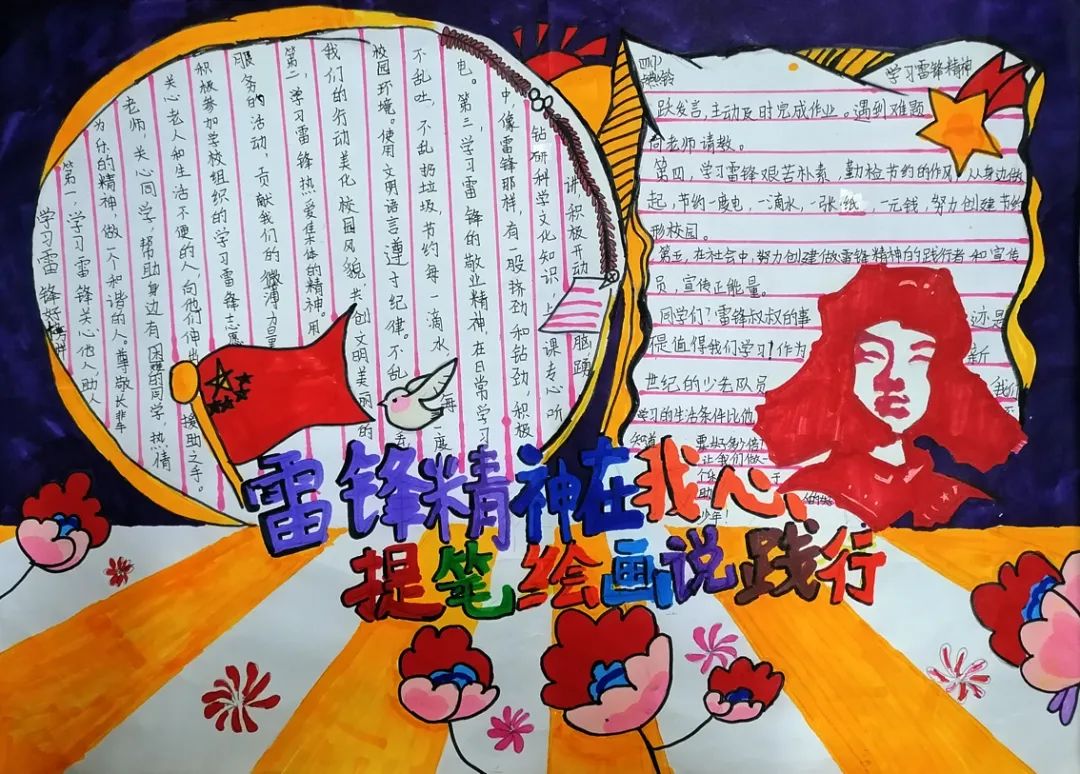 学习雷锋好榜样
第一,学习雷锋关心他人助人
为乐的精神,做一个和谐的人。尊敬长辈
老师,关心同学,帮助身边有困难的同学,热情
关心老人和生活不便的人,向他们伸出援助之手。
积极参加学校组织的学习雷锋志愿
服务的活动,贡献我们的微薄力量
第二,学习雷锋热爱集体的精神。用
我们的行动美化校园风貌,共创文明美丽的
校园环境。使用文明语言遵守纪律。不乱
不乱吐,不乱扔垃圾,节约每一滴水 每一度
电。第三,学习雷锋的敬业精神,在日常学习
中,像雷锋那样,有一股挤劲和钻劲,积极
钻研科学文化知识,上课专心听
讲,积极开动脑
四(1)
学习雷锋精神
发言,主动及时完成作业。遇到难题
向老师请教。
第四,学习雷锋艰苦朴素,勤俭节约的作风,从身边做
起,节约一度电,一滴水,一张纸,一元钱,努力创建节约
形校园。
第五,在社会中,努力创建做雷锋精神的践行者和宣传
员,宣传正能量。
同学们?雷锋叔叔的事 迹是
很值得我们学习!作为 新
世纪的少先队员 我们
学习的生活条件比他
知道 要好多倍
让我们做一
个
助
少年!
雷锋精神在我心、
提笔绘画说践行